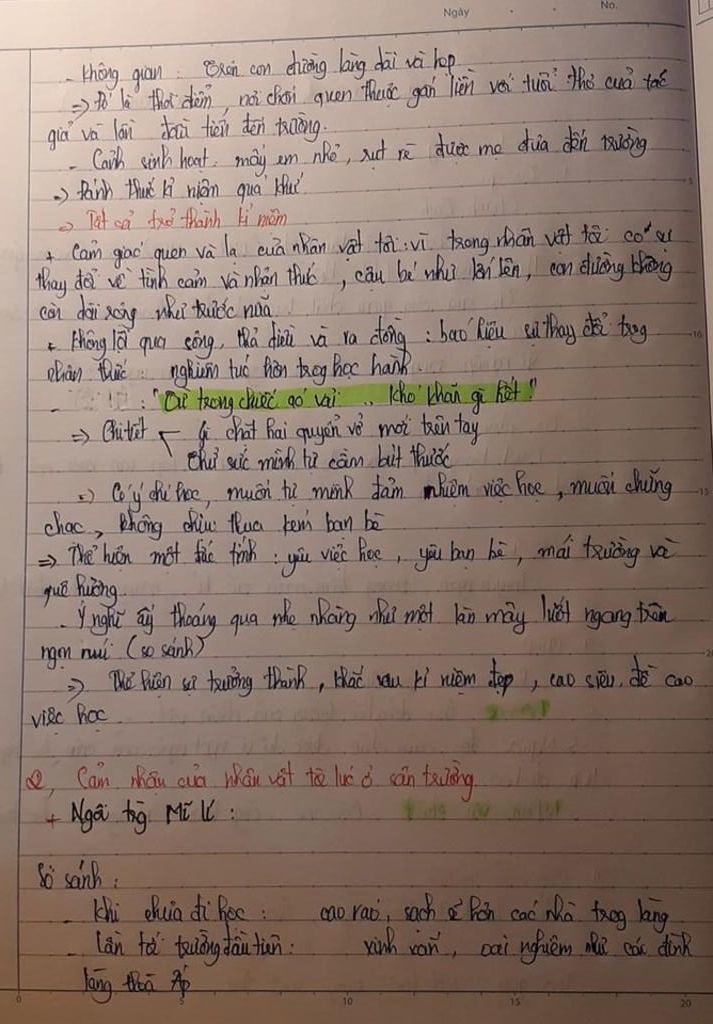 Ngày
No.
- Không gian: Trên con đường làng dài và hẹp
=> Đó là thời điểm, nơi chốn quen thuộc gắn liền với tuổi thơ của tác
giả và lần đầu tiên đến trường.
- Cảnh sinh hoạt: mấy em nhỏ, rụt rè được mẹ đưa đến trường
=> Đánh thức kỉ niệm quá khứ
=> Tất cả trở thành kỉ niệm
+ Cảm giác quen và lạ của nhân vật tôi: vì trong nhân vật tôi có sự
thay đổi về tình cảm và nhận thức, cậu bé như lớn lên, con đường không
còn dài rộng như trước nữa
+ Không lội qua sông, thả diều và ra đồng: báo hiệu sự thay đổi trog
nhận thức: nghiêm túc hơn trog học hành.
- : "Từ trong chiếc áo vải .. khó khăn gì hết"
=> Chi tiết Ghì chặt hai quyển vở mới trên tay
Thử sức mình tự cầm bút thước
=> Có ý chí học, muốn tự mình đảm nhiệm việc học, muốn chững
chạc, không chịu thua kém bạn bè
=> Thể hiện một đức tính: yêu việc học, yêu bạn bè, mái trường và
quê hương.
- Ý nghĩ ấy thoáng qua nhẹ nhàng như một làn mây lướt ngang trên
ngọn núi (so sánh)
=> Thể hiện sự trưởng thành, khắc sâu kỉ niệm đẹp, cao siêu, đề cao
việc học
2, Cảm nhận của nhân vật tôi lúc ở sân trường
+ Ngôi trg Mĩ Lí:
So sánh:
- Khi chưa đi học: cao ráo, sạch sẽ hơn các nhà trog làng
- Lần tới trường đầu tiên: xinh xắn, oai nghiêm như các đình
làng Hòa Ấp
0 5 10 15 20